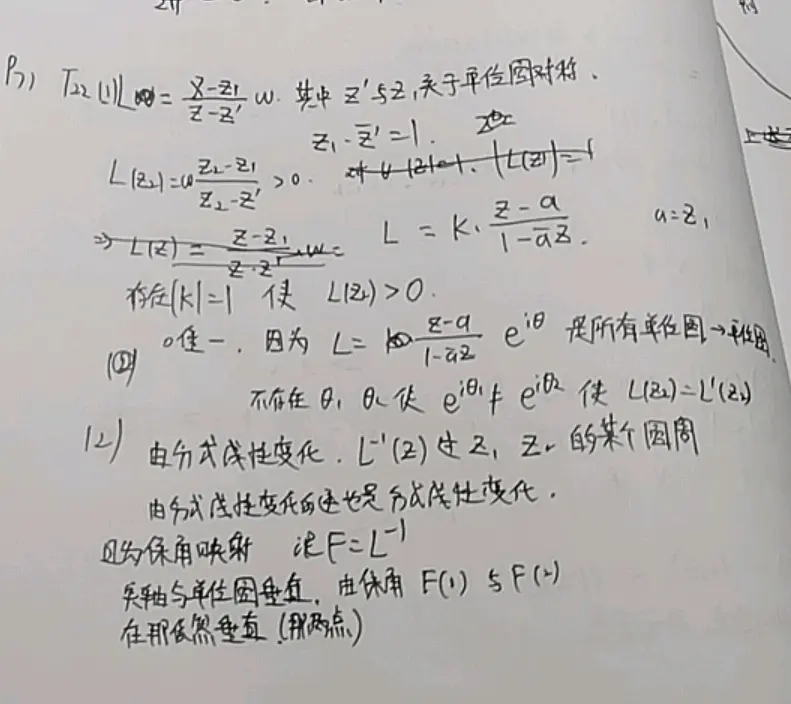 P71 T22 (1) L = \frac{z-z_1}{z-z'} w. 其中 z' 与 z_1 关于单位圆对称.
z_1 · \bar{z}' = 1.
L(z_2) = w \frac{z_2-z_1}{z_2-z'} > 0.
L = K · \frac{z-a}{1-\bar{a}z}. a = z_1
存在 |K|=1 使 L(z_2) > 0.
唯一. 因为 L = \frac{z-a}{1-\bar{a}z} e^{iθ} 是所有单位圆→单位圆.
不存在 θ_1 θ_2 使 e^{iθ_1} ≠ e^{iθ_2} 使 L(z_2) = L'(z_2)
(2) 由分式线性变化. L^{-1}(z) 过 z_1 z_2 的某个圆周
由分式线性变化的逆也是分式线性变化.
且为保角映射 记 F = L^{-1}
实轴与单位圆垂直. 由保角 F(1) 与 F(2)
在那依然垂直 (那两点)